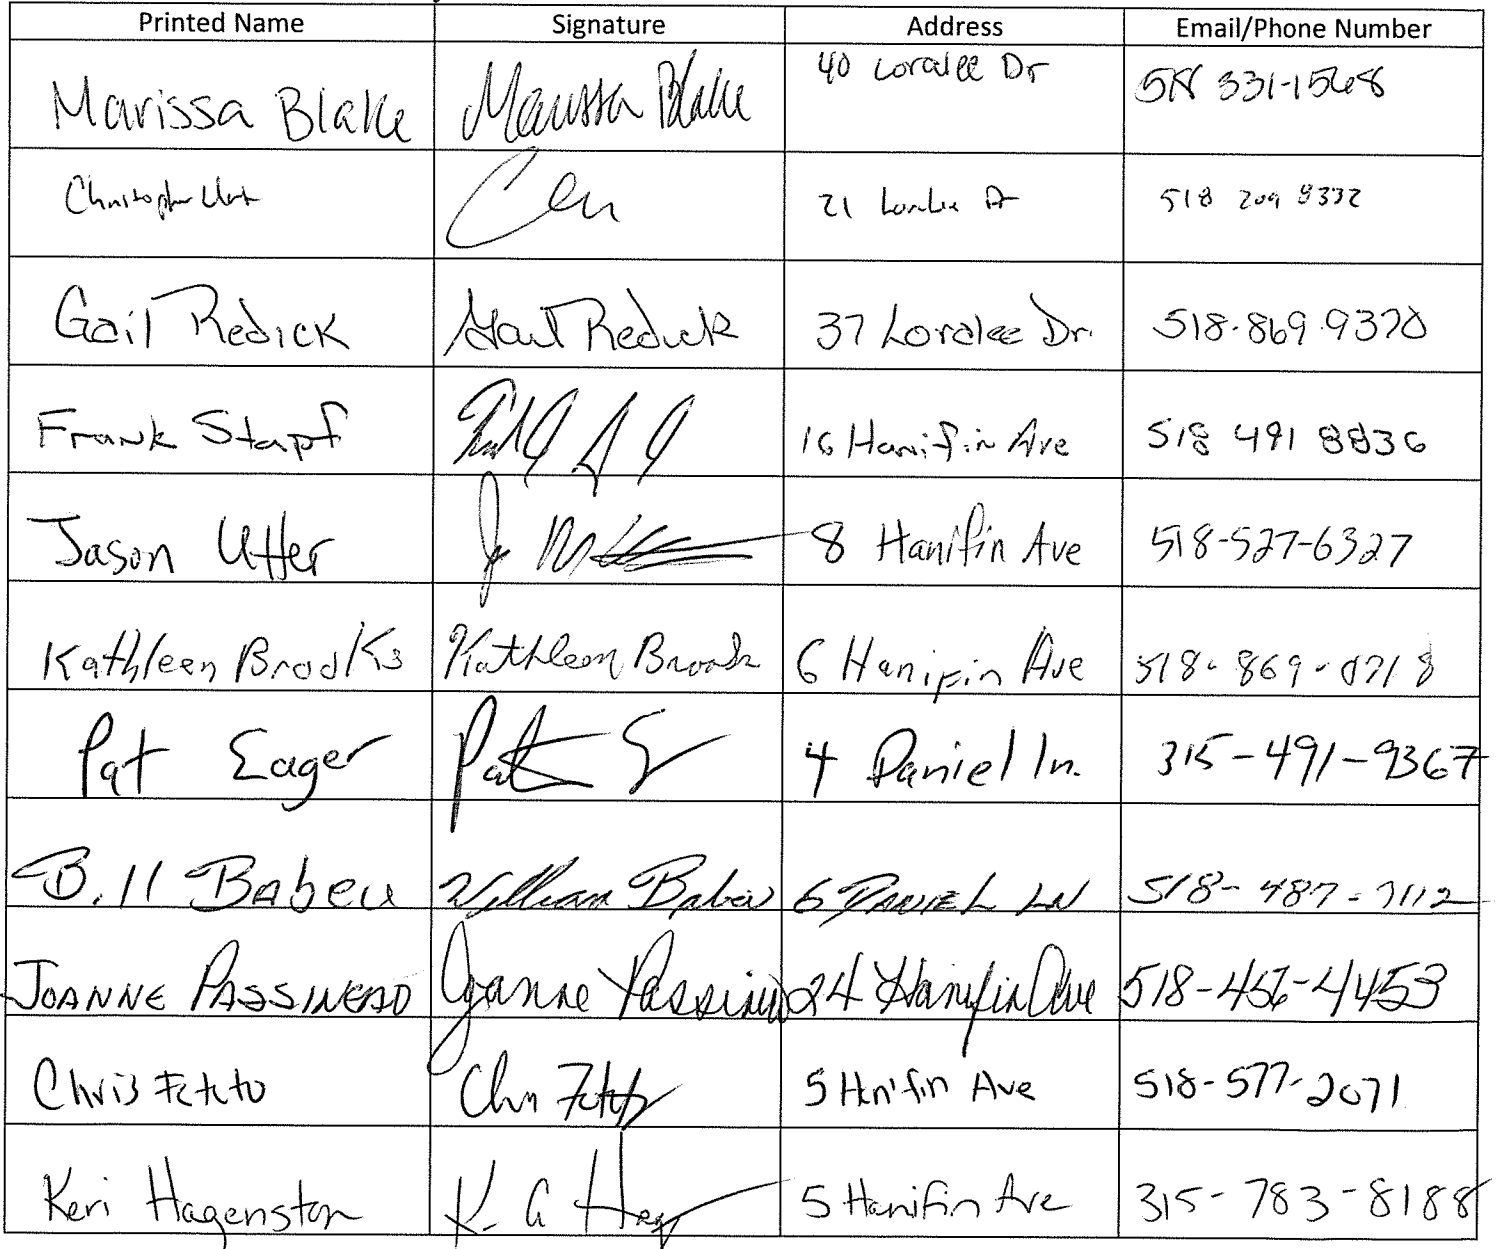 Printed Name Signature Address Email/Phone Number
Marissa Blake Marissa Blake 40 Loralee Dr 518 331-1568
Christopher 21 Loralee Dr 518 209 8332
Gail Redick Gail Redick 37 Loralee Dr. 518-869-9370
Frank Stapf 16 Hanifin Ave 518 491 8836
Jason Utter 8 Hanifin Ave 518-527-6327
Kathleen Brooks Kathleen Brooks 6 Hanifin Ave 518-869-0718
Pat Eager 4 Daniel ln. 315-491-9367
Bill Babeu William Babeu 6 DANIEL LN 518-487-7112
JOANNE PASSINEAU Joanne Passineau 24 Hanifin Ave 518-456-4453
Chris 5 Hnifin Ave 518-577-2071
Keri Hagenston K. A Hag 5 Hanifin Ave 315-783-8188